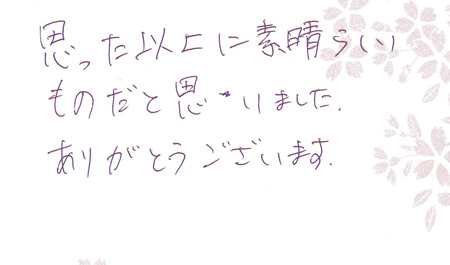 思った以上に素晴らしい
ものだと思いました.
ありがとうございます.